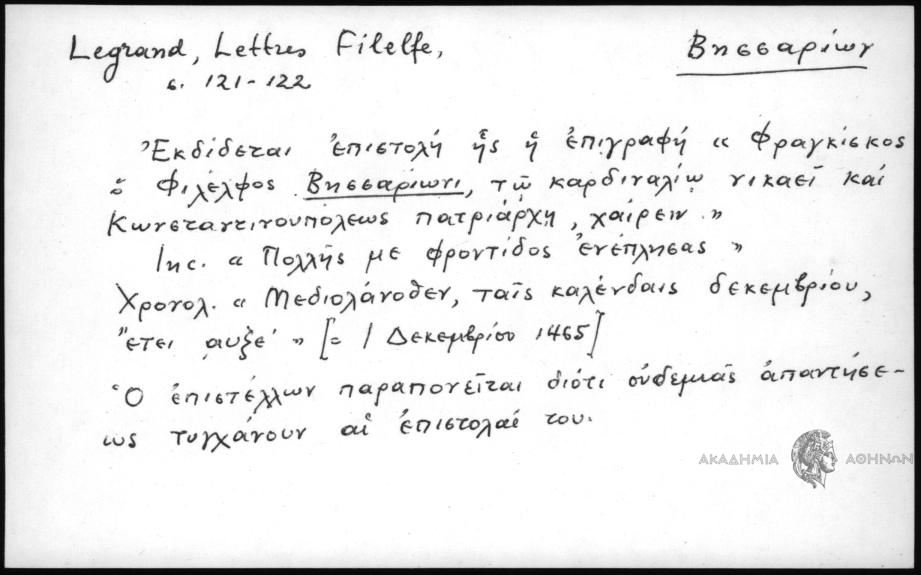 Legrand, Lettres Filelfe,
Βησσαρίων
σ. 121-122
Ἐκδίδεται ἐπιστολή ἧς ἡ ἐπιγραφή « Φραγκίσκος
ὁ Φιλέλφος Βησσαρίωνι, τῷ καρδιναλίῳ νικαεῖ καί
Κωνσταντινουπόλεως πατριάρχῃ, χαίρειν.»
Inc. « Πολλῆς με φροντίδος ἐνέπλησας »
Χρονολ. « Μεδιολάνοθεν, ταῖς καλένδαις δεκεμβρίου,
ἔτει αυξε´ » [= 1 Δεκεμβρίου 1465]
Ὁ ἐπιστέλλων παραπονεῖται διότι οὐδεμιᾶς ἀπαντήσε-
ως τυγχάνουν αἱ ἐπιστολαί του.
ΑΚΑΔΗΜΙΑ ΑΘΗΝΩΝ